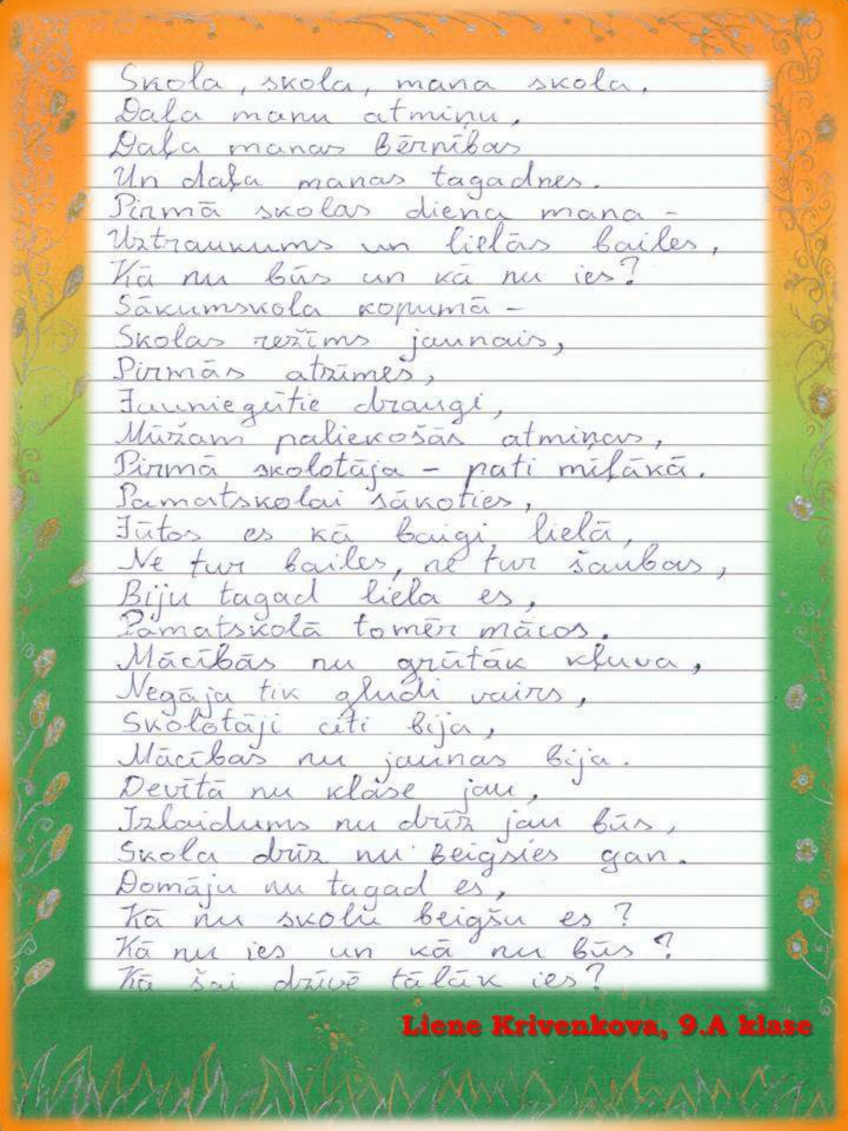 Skola, skola, mana skola,
Daļa manu atmiņu,
Daļa manas bērnības
Un daļa manas tagadnes.
Pirmā skolas diena mana -
Uztraukums un lielās bailes,
Kā nu būs un kā nu ies?
Sākumskola kopumā -
Skolas režīms jaunais,
Pirmās atzīmes,
Jauniegūtie draugi,
Mūžam paliekošās atmiņas,
Pirmā skolotāja - pati mīļākā.
Pamatskolai sākoties,
Jūtos es kā baigi lielā,
Ne tur bailes, ne tur šaubas,
Biju tagad liela es,
Pamatskolā tomēr mācos.
Mācībās nu grūtāk kļuva,
Negāja tik gludi vairs,
Skolotāji citi bija,
Mācības nu jaunas bija.
Devītā nu klase jau,
Izlaidums nu drīz jau būs,
Skola drīz nu beigsies gan.
Domāju nu tagad es,
Kā nu skolu beigšu es?
Kā nu ies un kā nu būs?
Kā šai dzīvē tālāk ies?
Liene Krivenkova, 9.A klase